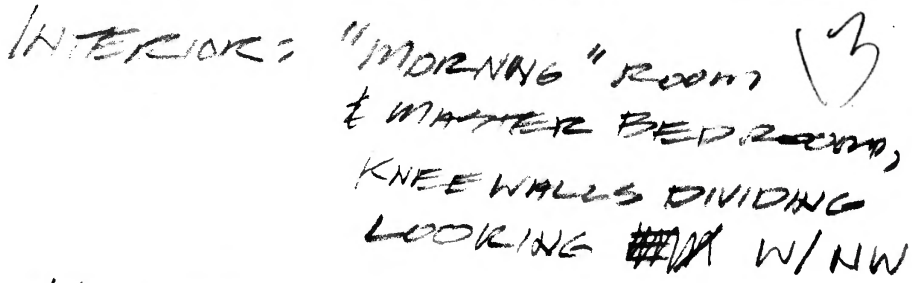 INTERIOR: "MORNNG" ROOM 13
& MASTER BEDROOM,
KNEE WALLS DIVIDING
LOOKING W/NW